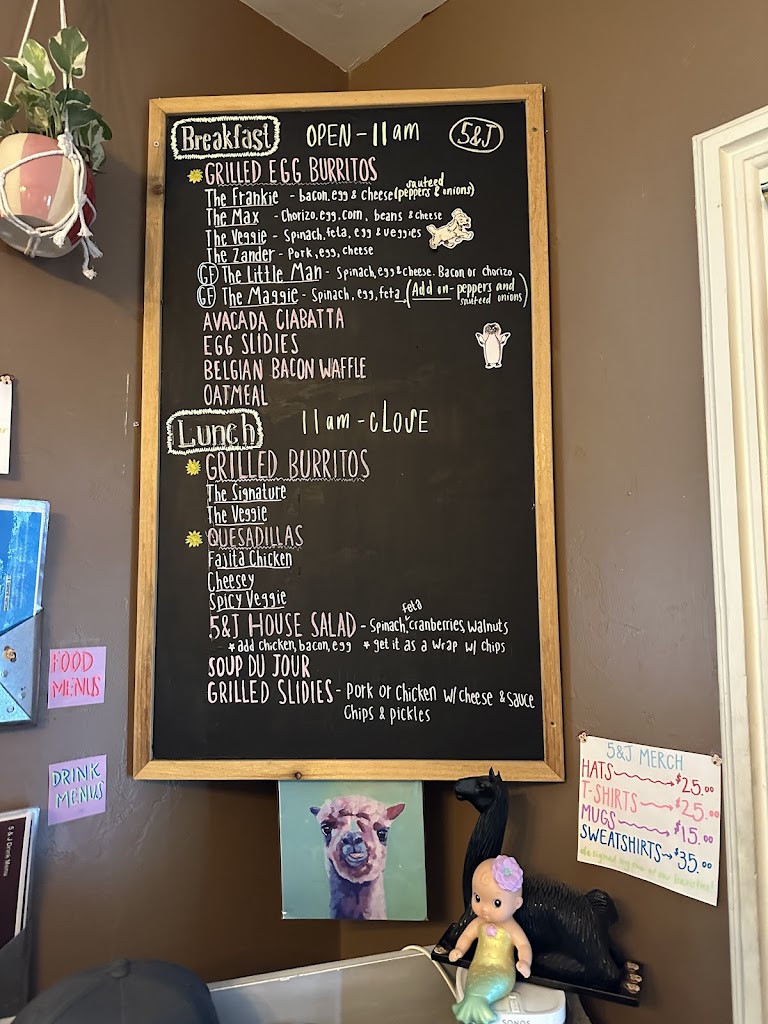 Breakfast OPEN - 11am 5&J
GRILLED EGG BURRITOS
The Frankie - bacon, egg & cheese (sauteed peppers & onions)
The Max - Chorizo, egg, corn, beans & cheese
The Veggie - Spinach, feta, egg & veggies
The Zander - Pork, egg, cheese
GF The Little Man - Spinach, egg & cheese. Bacon or chorizo
GF The Maggie - Spinach, egg, feta (Add on - peppers and sauteed onions)
AVACADA CIABATTA
EGG SLIDIES
BELGIAN BACON WAFFLE
OATMEAL
Lunch 11am - CLOSE
GRILLED BURRITOS
The Signature
The Veggie
QUESADILLAS
Fajita Chicken
Cheesey
Spicy Veggie
5&J HOUSE SALAD - Spinach, feta, cranberries, walnuts
* add chicken, bacon, egg * get it as a wrap w/ chips
SOUP DU JOUR
GRILLED SLIDIES - Pork or Chicken w/ cheese & sauce
Chips & pickles
FOOD
MENUS
DRINK
MENUS
5 & J Drink Menu
5&J MERCH
HATS $25.00
T-SHIRTS $25.00
MUGS $15.00
SWEATSHIRTS $35.00
designed by one of our baristas!
SONOS